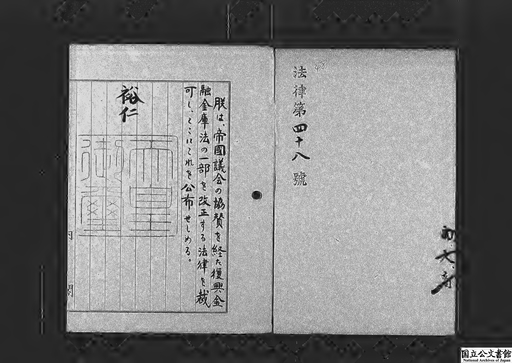 法律第四十八號
朕は、帝國議会の協賛を経た復興金
融金庫法の一部を改正する法律を裁
可し、ここにこれを公布せしめる。
裕仁
天皇
御璽
国立公文書館
National Archives of Japan